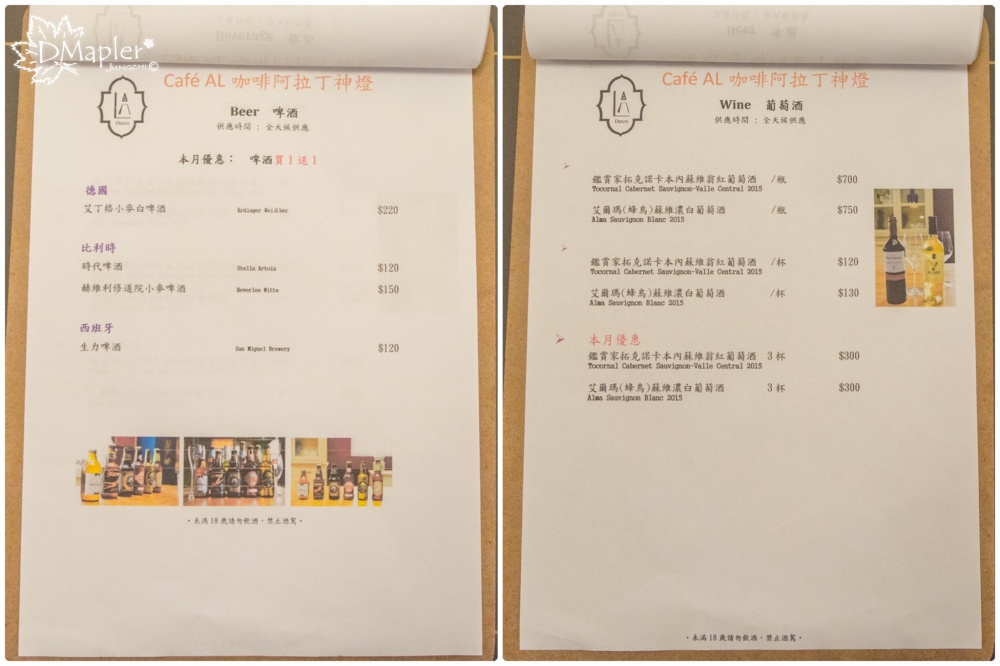 DMapler
Café AL 咖啡阿拉丁神燈
Beer 啤酒
供應時間 : 全天候供應
本月優惠： 啤酒買1送1
德國
艾丁格小麥白啤酒 Erdinger Weißber $220
比利時
時代啤酒 Stella Artois $120
赫維利修道院小麥啤酒 Heverlee Witte $150
西班牙
生力啤酒 San Miguel Brewery $120
・未滿18歲請勿飲酒、禁止酒駕・
Café AL 咖啡阿拉丁神燈
Wine 葡萄酒
供應時間 : 全天候供應
鑑賞家拓克諾卡本內蘇維翁紅葡萄酒 /瓶 $700
Tocornal Cabernet Sauvignon-Valle Central 2015
艾爾瑪(蜂鳥)蘇維濃白葡萄酒 /瓶 $750
Alma Sauvignon Blanc 2015
鑑賞家拓克諾卡本內蘇維翁紅葡萄酒 /杯 $120
Tocornal Cabernet Sauvignon-Valle Central 2015
艾爾瑪(蜂鳥)蘇維濃白葡萄酒 /杯 $130
Alma Sauvignon Blanc 2015
本月優惠
鑑賞家拓克諾卡本內蘇維翁紅葡萄酒 3杯 $300
Tocornal Cabernet Sauvignon-Valle Central 2015
艾爾瑪(蜂鳥)蘇維濃白葡萄酒 3杯 $300
Alma Sauvignon Blanc 2015
・未滿18歲請勿飲酒、禁止酒駕・